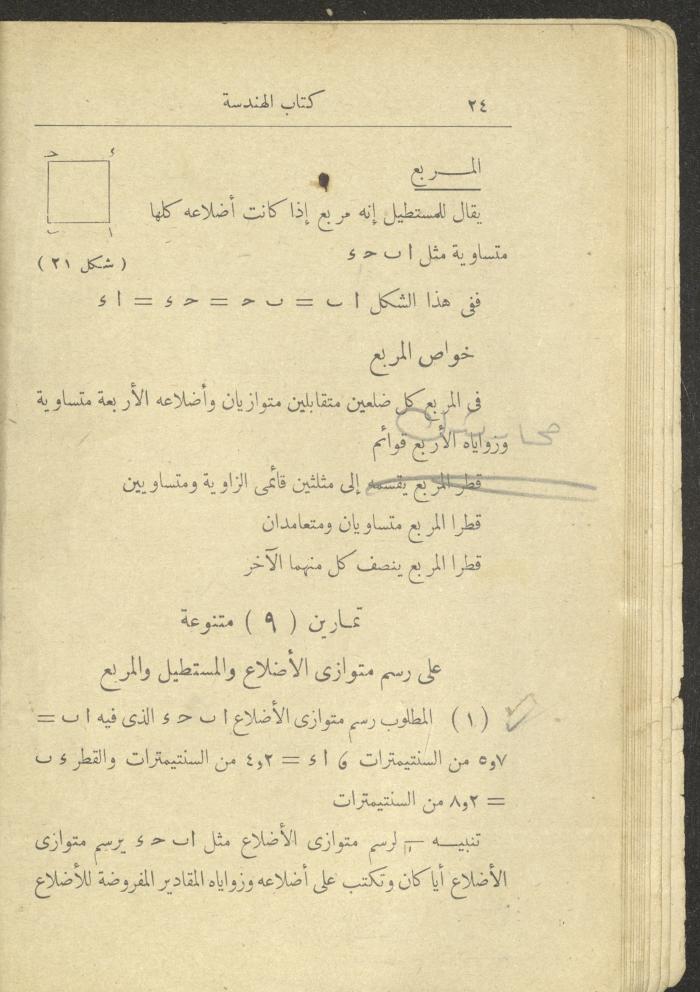 ٢٤ كتاب الهندسة
المـــربع
يقال للمستطيل إنه مربع إذا كانت أضلاعه كلها
متساوية مثل ا ب ح ء
ء ح
ا ب
( شكل ٢١ )
ففى هذا الشكل ا ب = ب ح = ح ء = ا ء
خواص المربع
فى المربع كل ضلعين متقابلين متوازيان وأضلاعه الأربعة متساوية
وزواياه الأربع قوائم
قطر المربع يقسمه إلى مثلثين قائمى الزاوية ومتساويين
قطرا المربع متساويان ومتعامدان
قطرا المربع ينصف كل منهما الآخر
تمـارين ( ٩ ) متنوعة
على رسم متوازى الأضلاع والمستطيل والمربع
( ١ ) المطلوب رسم متوازى الأضلاع ا ب ح ء الذى فيه ا ب =
٥٫٧ من السنتيمترات ٦ ا ء = ٤٫٢ من السنتيمترات والقطر ء ب
= ٨٫٢ من السنتيمترات
تنبيـــه — لرسم متوازى الأضلاع مثل ا ب ح ء يرسم متوازى
الأضلاع أيا كان وتكتب على أضلاعه وزواياه المقادير المفروضة للأضلاع